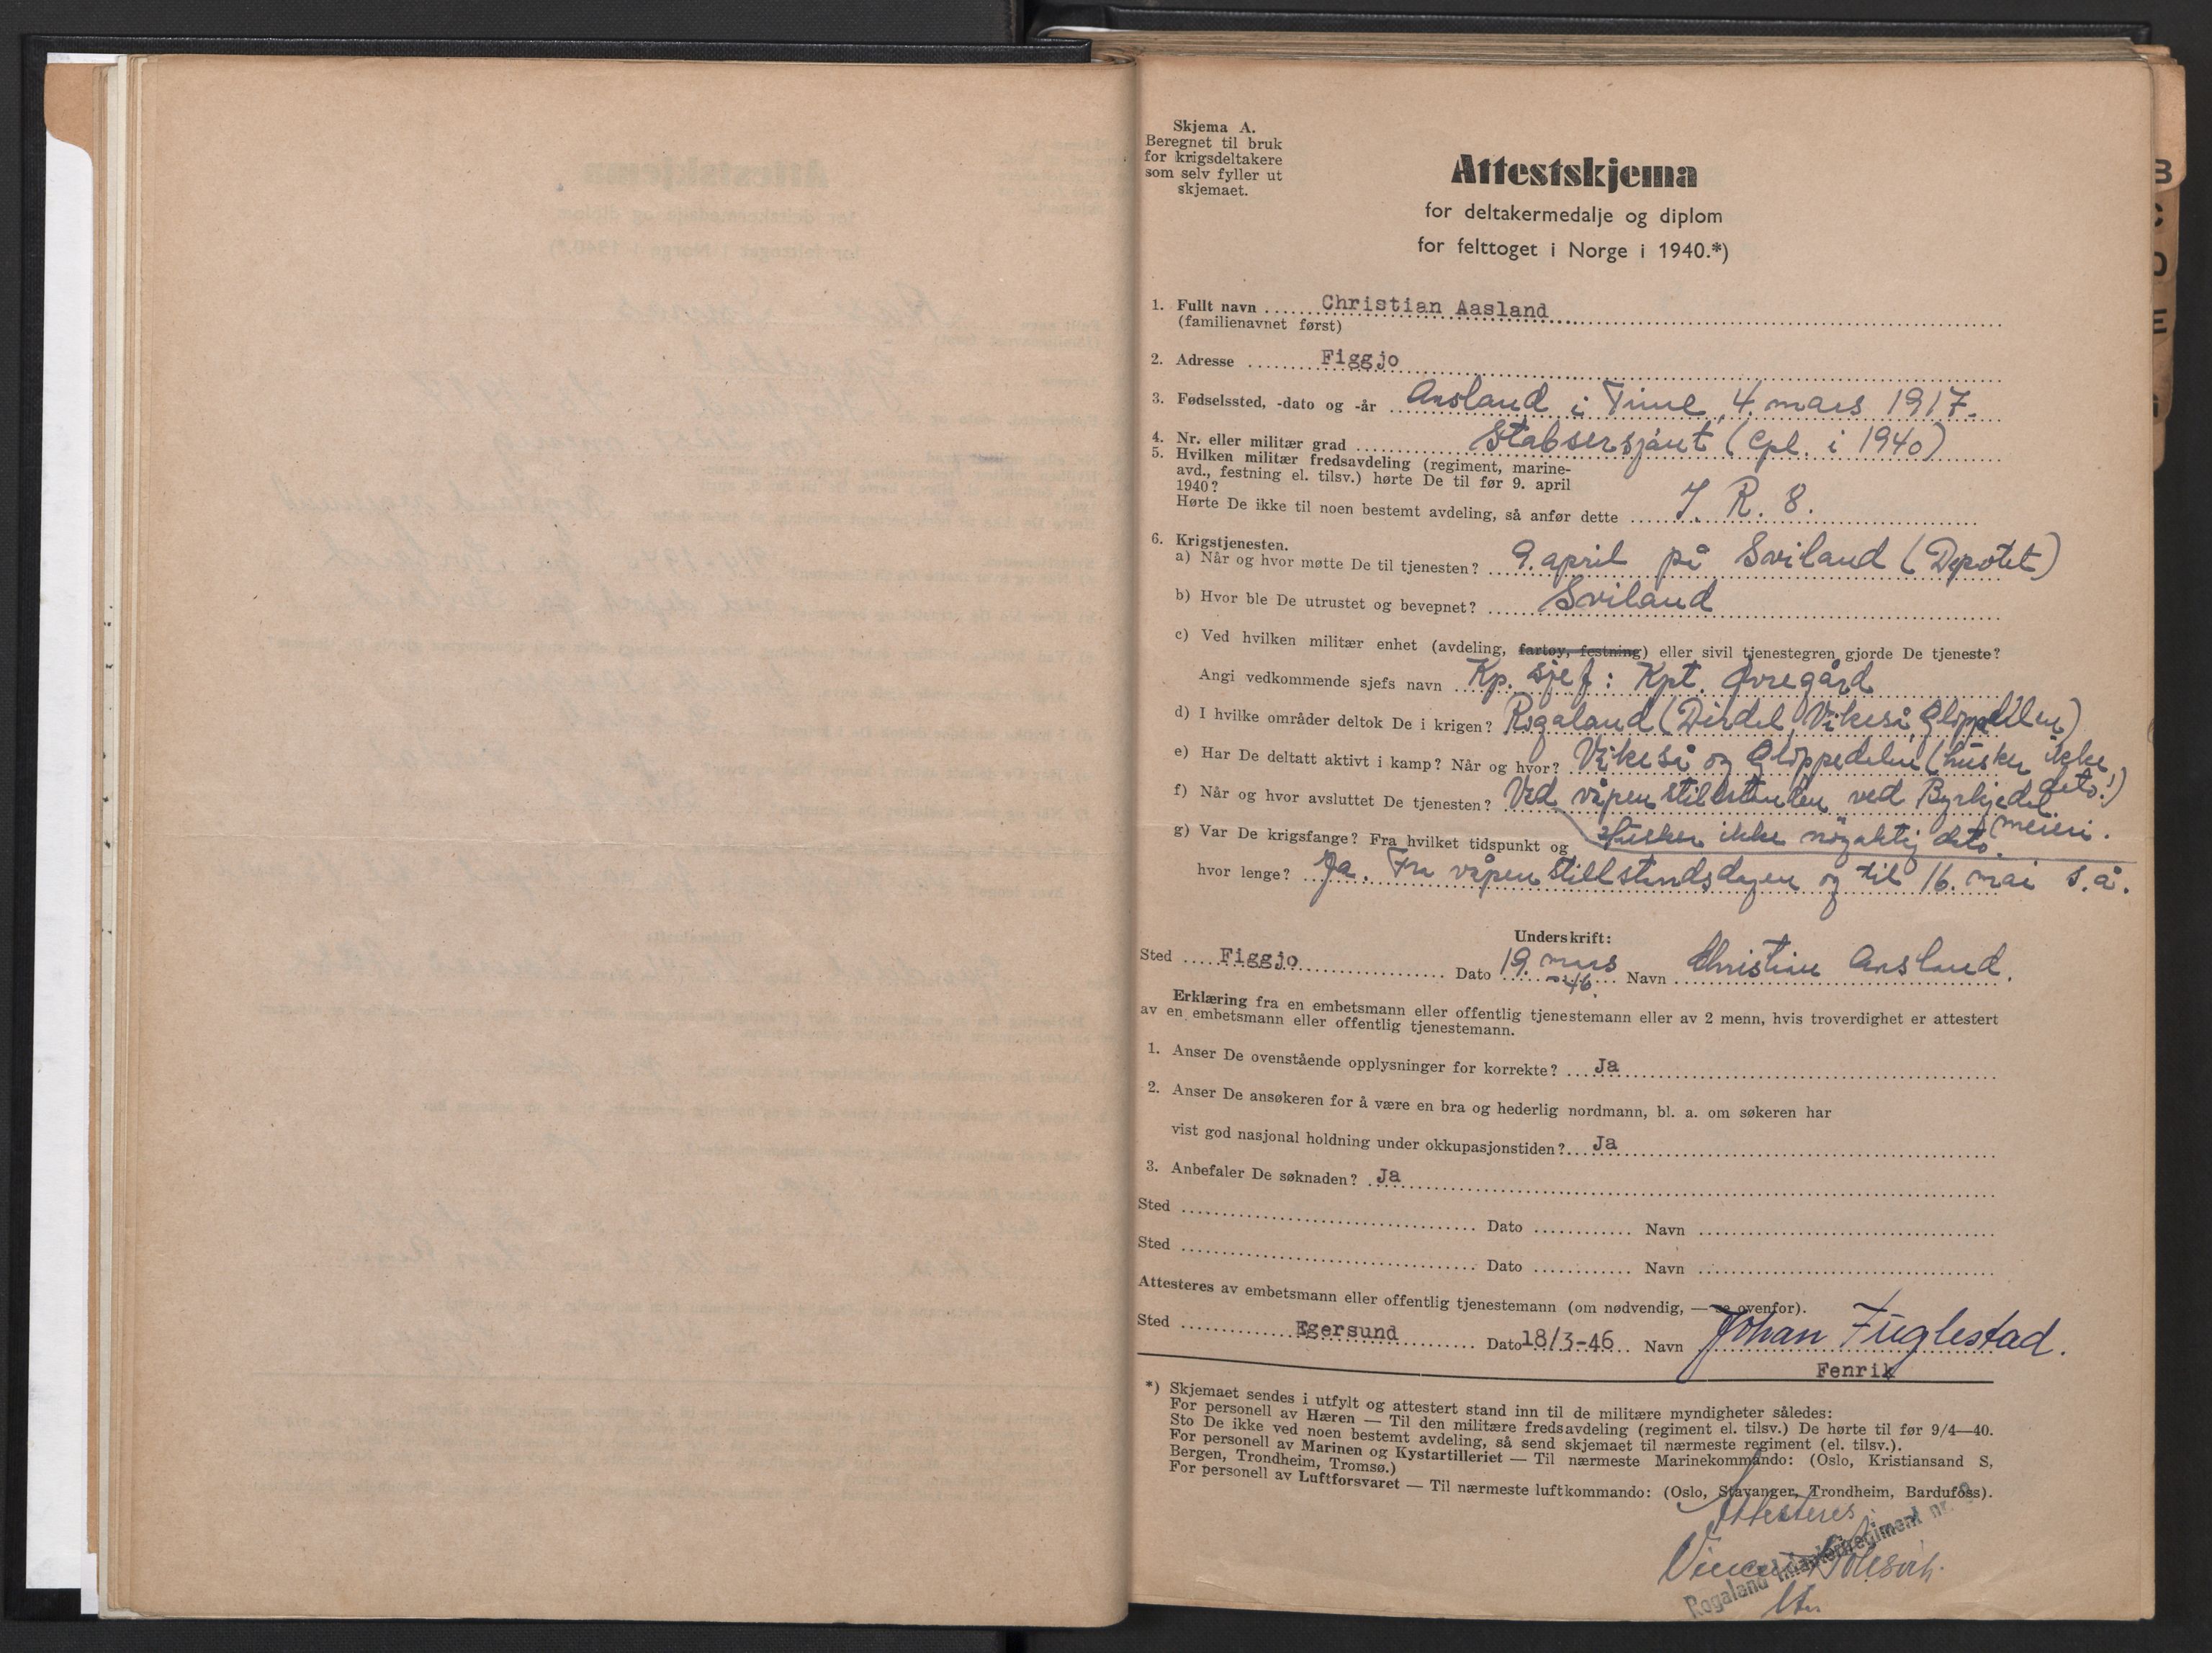 Skjema A.
Beregnet til bruk
for krigsdeltakere
som selv fyller ut
skjemaet.
Attestskjema
for deltakermedalje og diplom
for felttoget i Norge i 1940.*)
1. Fullt navn Christian Aasland
(familienavnet først)
2. Adresse Figgjo
3. Fødselssted, -dato og -år Aasland i Time, 4. mars 1917.
4. Nr. eller militær grad Stabsersjant (Cpl. i 1940)
5. Hvilken militær fredsavdeling (regiment, marine-
avd., festning el. tilsv.) hørte De til før 9. april
1940?
Hørte De ikke til noen bestemt avdeling, så anfør dette J. R. 8.
6. Krigstjenesten.
a) Når og hvor møtte De til tjenesten? 9. april på Sviland (Depotet)
b) Hvor ble De utrustet og bevepnet? Sviland
c) Ved hvilken militær enhet (avdeling, fartøy, festning) eller sivil tjenestegren gjorde De tjeneste?
Angi vedkommende sjefs navn Kp. sjef: Kpt. Øvregård
d) I hvilke områder deltok De i krigen? Rogaland (Dirdal, Vikeså, Gloppedalen)
e) Har De deltatt aktivt i kamp? Når og hvor? Vikeså og Gloppedalen (husker ikke dato!)
f) Når og hvor avsluttet De tjenesten? Ved våpenstillstanden ved Byrkjedal meieri.
Husker ikke nøyaktig dato.
g) Var De krigsfange? Fra hvilket tidspunkt og
hvor lenge? Ja. Fra våpenstillstandsdagen og til 16. mai s.å.
Underskrift:
Sted Figgjo Dato 19. mars -46. Navn Christian Aasland.
Erklæring fra en embetsmann eller offentlig tjenestemann eller av 2 menn, hvis troverdighet er attestert
av en embetsmann eller offentlig tjenestemann.
1. Anser De ovenstående opplysninger for korrekte? Ja
2. Anser De ansøkeren for å være en bra og hederlig nordmann, bl. a. om søkeren har
vist god nasjonal holdning under okkupasjonstiden? Ja
3. Anbefaler De søknaden? Ja
Sted Dato Navn
Sted Dato Navn
Attesteres av embetsmann eller offentlig tjenestemann (om nødvendig, — se ovenfor).
Sted Egersund Dato 18/3-46 Navn Johan Fuglestad.
Fenrik
*) Skjemaet sendes i utfylt og attestert stand inn til de militære myndigheter således:
For personell av Hæren — Til den militære fredsavdeling (regiment el. tilsv.) De hørte til før 9/4—40.
Sto De ikke ved noen bestemt avdeling, så send skjemaet til nærmeste regiment (el. tilsv.).
For personell av Marinen og Kystartilleriet — Til nærmeste Marinekommando: (Oslo, Kristiansand S,
Bergen, Trondheim, Tromsø.)
For personell av Luftforsvaret — Til nærmeste luftkommando: (Oslo, Stavanger, Trondheim, Bardufoss).
Attesteres
Rogaland Infanteriregiment nr. 8
B
C
D
E